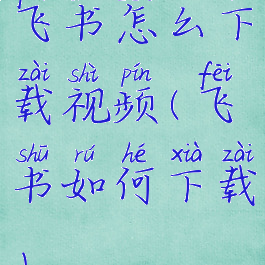 飞书怎么下
zài shì pín fēi
载视频(飞
shū rú hé xià zài
书如何下载
)